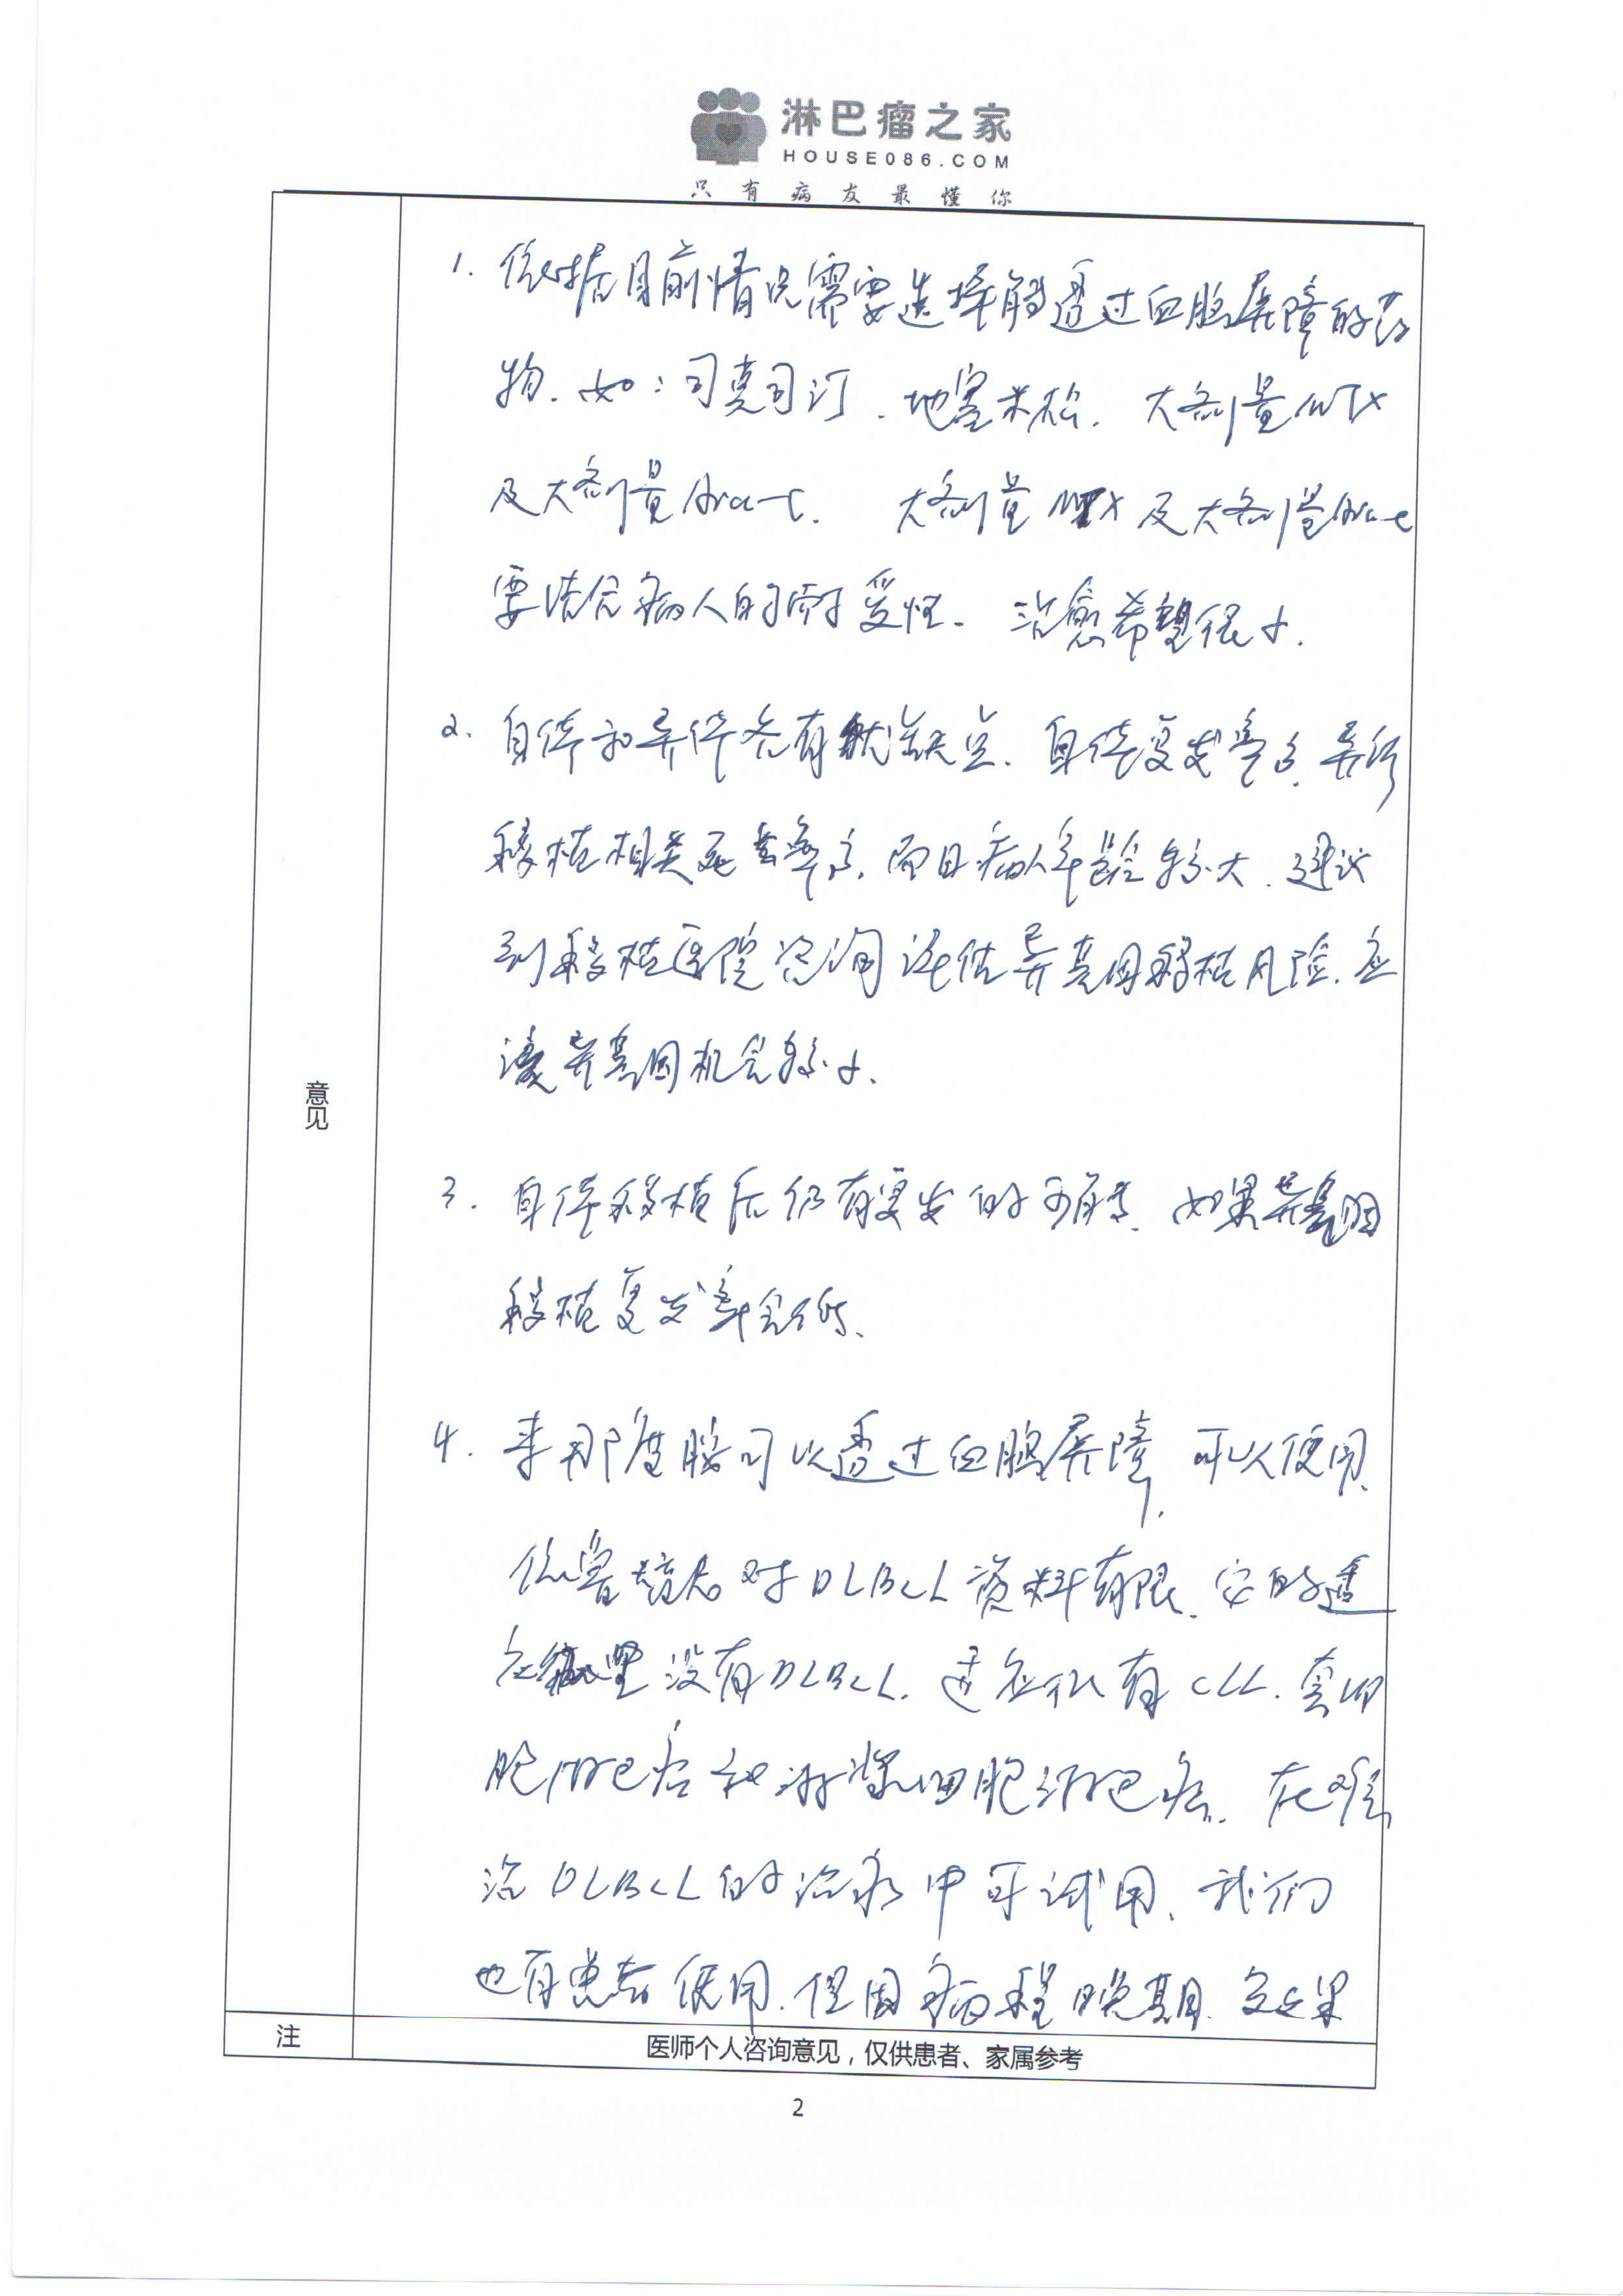 淋巴瘤之家
HOUSE086.COM
只有病友最懂你
意见
1. 依据目前情况需要选择能透过血脑屏障的药
物.如:司莫司汀.地塞米松.大剂量MTX
及大剂量Ara-C. 大剂量MTX及大剂量Ara-c
要结合病人的耐受性. 治愈希望很小.
2. 自体和异体各有优缺点.自体复发率高.异体
移植相关死亡率高.而且病人年龄较大.建议
到移植医院咨询评估异基因移植风险.应
该异基因机会较小.
3. 自体移植后仍有复发的可能.如果异基因
移植复发率会低.
4. 来那度胺可以透过血脑屏障,可以使用.
依鲁替尼对DLBCL资料有限.它的适
应症里没有DLBCL.适应症有CLL.套细
胞淋巴瘤和淋浆细胞淋巴瘤.在难
治DLBCL的治疗中可试用.我们
也有患者使用.但因病程晚期.效果
注
医师个人咨询意见,仅供患者、家属参考
2